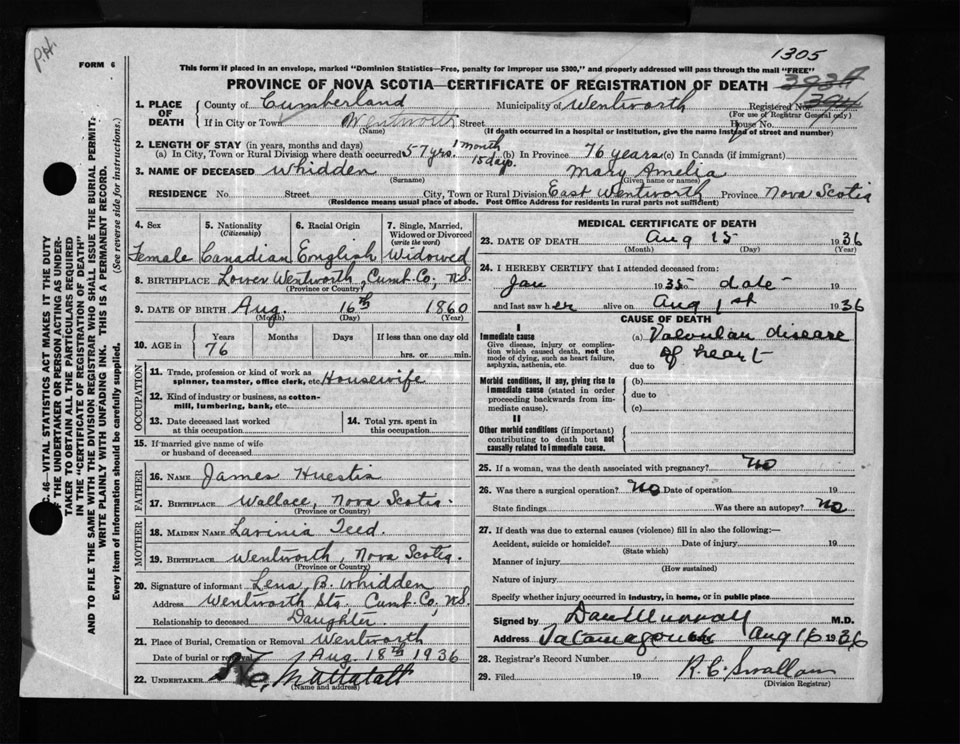 P.H.
FORM 6
1305
This form if placed in an envelope, marked "Dominion Statistics—Free, penalty for improper use $300," and properly addressed will pass through the mail "FREE"
PROVINCE OF NOVA SCOTIA—CERTIFICATE OF REGISTRATION OF DEATH
1. PLACE OF DEATH
County of Cumberland Municipality of Wentworth Registered No. 394
(For use of Registrar General only)
If in City or Town Wentworth Street House No.
(Name) (If death occurred in a hospital or institution, give the name instead of street and number)
2. LENGTH OF STAY (in years, months and days)
(a) In City, Town or Rural Division where death occurred 57 yrs. 1 month 15 days. (b) In Province 76 years (c) In Canada (if immigrant)
3. NAME OF DECEASED Whidden Mary Amelia
(Surname) (Given name or names)
RESIDENCE No. Street City, Town or Rural Division East Wentworth Province Nova Scotia
(Residence means usual place of abode. Post Office Address for residents in rural parts not sufficient)
4. Sex 5. Nationality (Citizenship) 6. Racial Origin 7. Single, Married, Widowed or Divorced (write the word)
Female Canadian English Widowed
8. BIRTHPLACE Lower Wentworth, Cumb. Co., N.S.
(Province or Country)
9. DATE OF BIRTH Aug. 16th 1860
(Month) (Day) (Year)
10. AGE in Years Months Days If less than one day old
76 hrs. or min.
OCCUPATION
11. Trade, profession or kind of work as spinner, teamster, office clerk, etc. Housewife
12. Kind of industry or business, as cotton-mill, lumbering, bank, etc.
13. Date deceased last worked at this occupation
14. Total yrs. spent in this occupation
15. If married give name of wife or husband of deceased
FATHER
16. NAME James Huestis
17. BIRTHPLACE Wallace, Nova Scotia.
(Province or Country)
MOTHER
18. MAIDEN NAME Lavinia Teed.
19. BIRTHPLACE Wentworth, Nova Scotia.
(Province or Country)
20. Signature of informant Lena B. Whidden
Address Wentworth Sta. Cumb. Co. N.S.
Relationship to deceased Daughter.
21. Place of Burial, Cremation or Removal Wentworth
Date of burial or removal Aug. 18th 1936
22. UNDERTAKER Mattatall
(Name and address)
MEDICAL CERTIFICATE OF DEATH
23. DATE OF DEATH Aug 15 1936
(Month) (Day) (Year)
24. I HEREBY CERTIFY that I attended deceased from:
Jan 1935 to date 19
and last saw her alive on Aug 1st 1936
CAUSE OF DEATH
I
Immediate cause
Give disease, injury or complication which caused death, not the mode of dying, such as heart failure, asphyxia, asthenia, etc.
(a) Valvular disease of heart
due to
Morbid conditions, if any, giving rise to immediate cause (stated in order proceeding backwards from immediate cause).
(b)
due to
(c)
II
Other morbid conditions (if important) contributing to death but not causally related to immediate cause.
25. If a woman, was the death associated with pregnancy? No
26. Was there a surgical operation? No Date of operation 19
State findings Was there an autopsy? No
27. If death was due to external causes (violence) fill in also the following:—
Accident, suicide or homicide? Date of injury 19
(State which)
Manner of injury
(How sustained)
Nature of injury
Specify whether injury occurred in industry, in home, or in public place
Signed by Dan Murray M.D.
Address Tatamagouche Aug 16 1936
28. Registrar's Record Number
29. Filed 19 R. C. Swallow
(Division Registrar)
C. 46—VITAL STATISTICS ACT MAKES IT THE DUTY
OF THE UNDERTAKER OR PERSON ACTING AS UNDER-
TAKER TO OBTAIN ALL THE PARTICULARS REQUIRED
IN THE "CERTIFICATE OF REGISTRATION OF DEATH"
AND TO FILE THE SAME WITH THE DIVISION REGISTRAR WHO SHALL ISSUE THE BURIAL PERMIT.
WRITE PLAINLY WITH UNFADING INK. THIS IS A PERMANENT RECORD.
Every item of information should be carefully supplied. (See reverse side for instructions.)